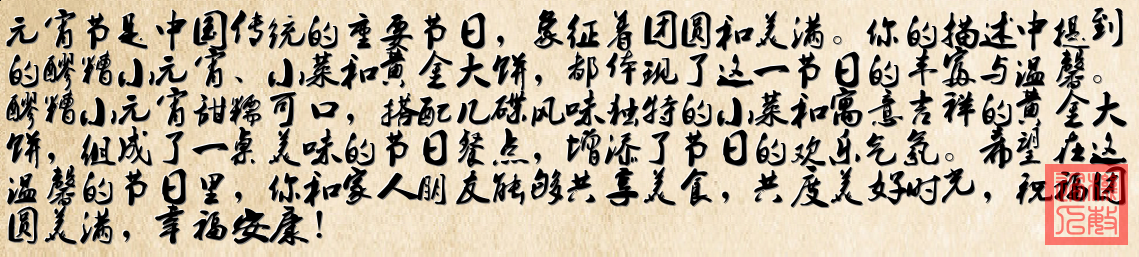 元宵节是中国传统的重要节日，象征着团圆和美满。你的描述中提到
的醪糟小元宵、小菜和黄金大饼，都体现了这一节日的丰富与温馨。
醪糟小元宵甜糯可口，搭配几碟风味独特的小菜和寓意吉祥的黄金大
饼，组成了一桌美味的节日餐点，增添了节日的欢乐气氛。希望在这
温馨的节日里，你和家人朋友能够共享美食，共度美好时光，祝福团
圆美满，幸福安康！